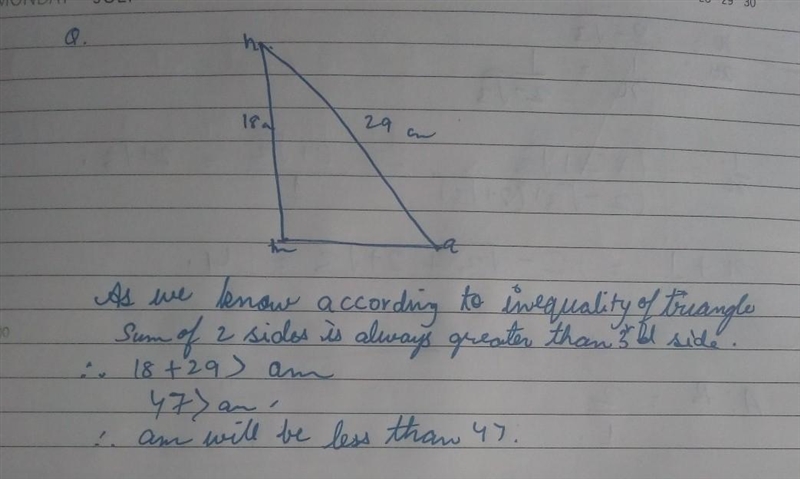 MONDAY JULY
28 29 30
Q.
n
18
29 cm
m
a
As we know according to inequality of triangle
Sum of 2 sides is always greater than 3rd side.
∴ 18+29> am
47>am
∴ am will be less than 47.